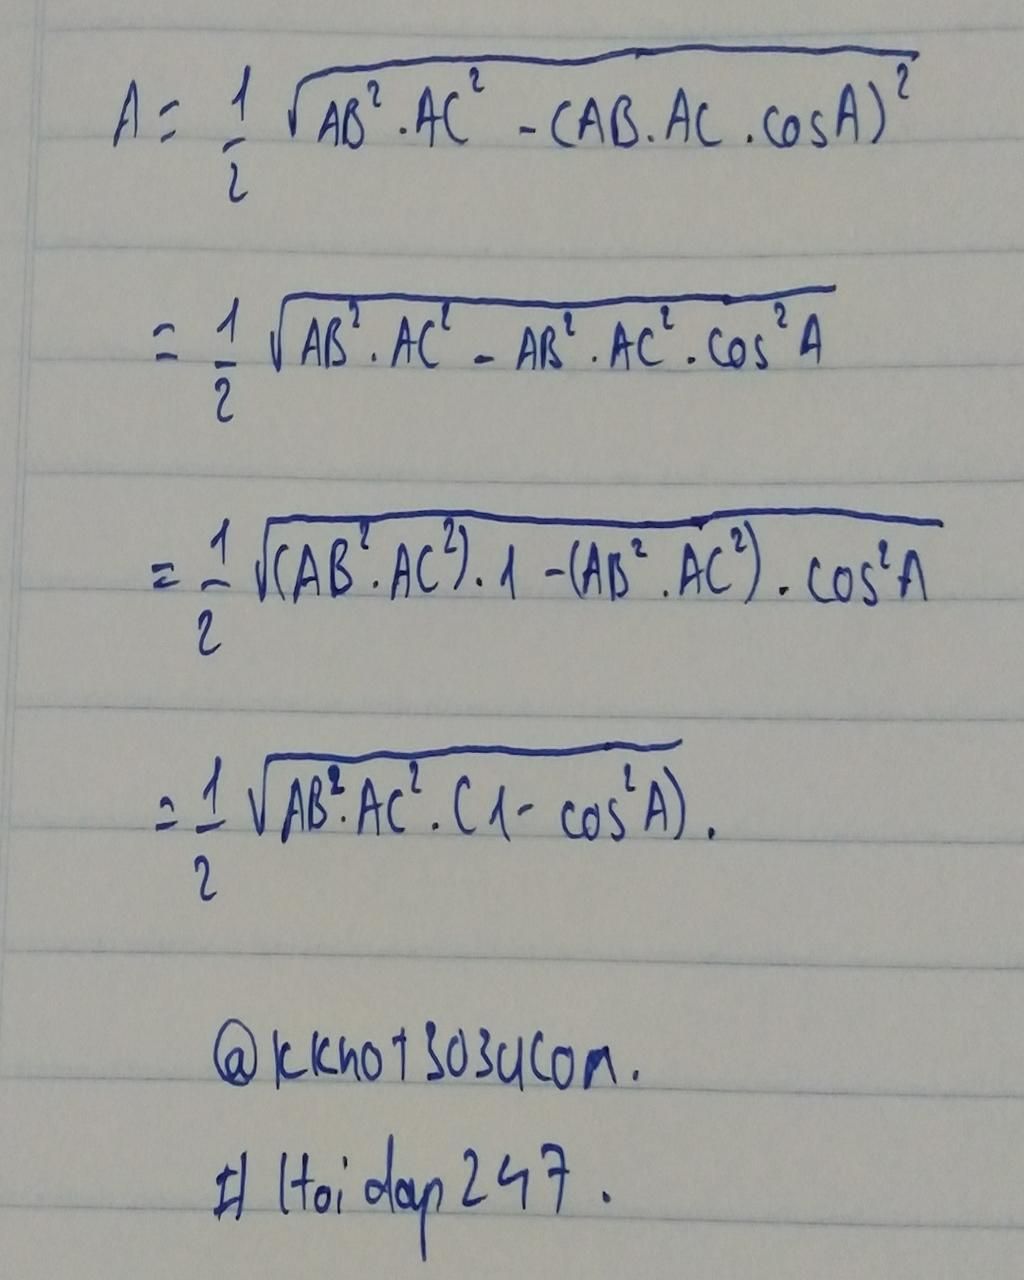 A = 1/2 √(AB² . AC² - (AB . AC . cos A)²)
= 1/2 √(AB² . AC² - AB² . AC² . cos² A)
= 1/2 √((AB² . AC²) . 1 - (AB² . AC²) . cos² A)
= 1/2 √(AB² . AC² . (1 - cos² A)) .
# Hoidap247 .